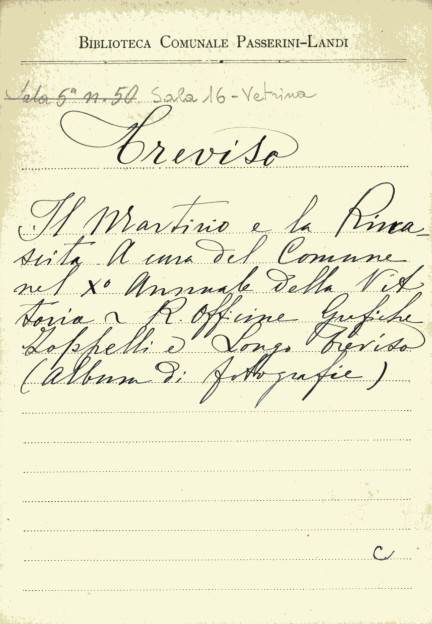 BIBLIOTECA COMUNALE PASSERINI-LANDI
Sala 5ª n. 50. Sala 16 - Vetrina
Treviso
Il Martirio e la Rina-
scita A cura del Comune
nel Xº Annuale della Vit
toria ~ R. Officine Grafiche
Zoppelli e Longo Treviso
(Album di fotografie)
C